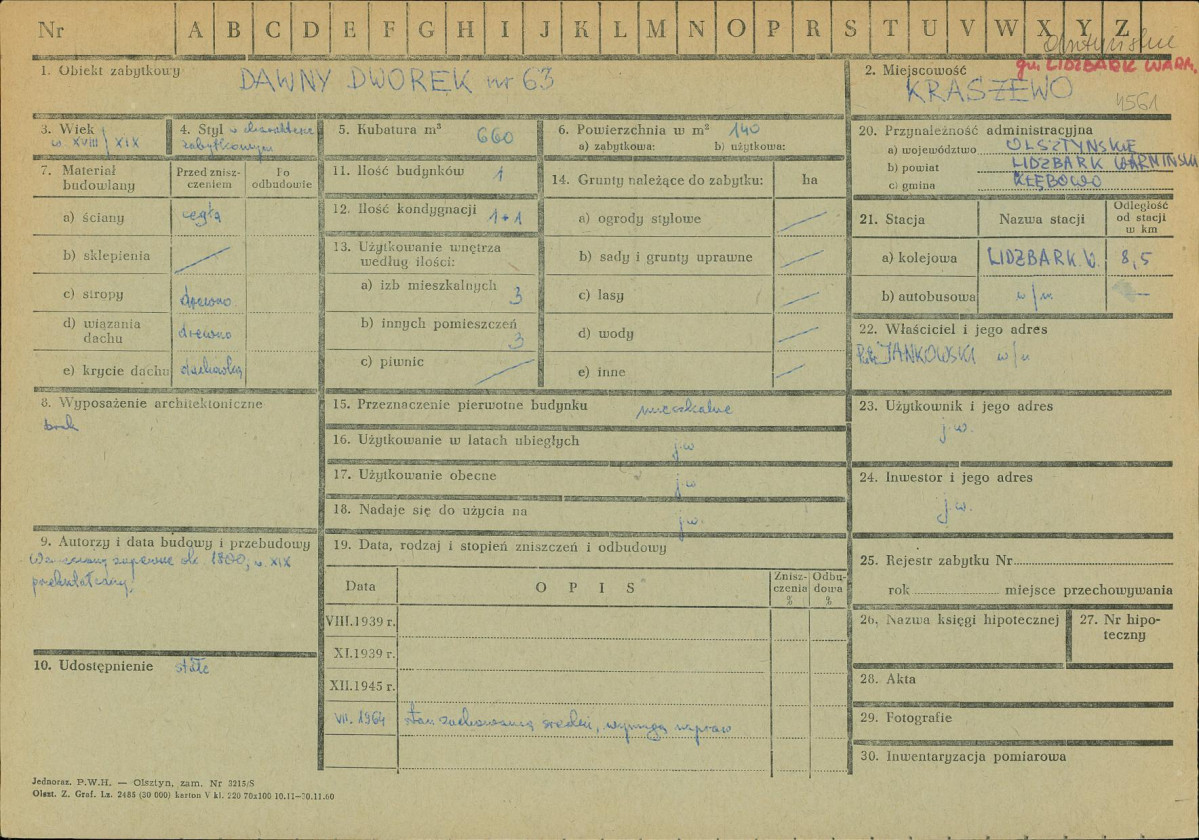 Nr A B C D E F G H I J K L M N O P R S T U V W X Y Z
Olsztyńskie
gm. LIDZBARK WARM.
1. Obiekt zabytkowy DAWNY DWOREK nr 63
2. Miejscowość
KRASZEWO
4561
3. Wiek
w. XVIII/XIX
4. Styl o charakterze
zabytkowym
5. Kubatura m³ 660
6. Powierzchnia w m² 140
a) zabytkowa: b) użytkowa:
7. Materiał
budowlany
Przed znisz-
czeniem
Po
odbudowie
a) ściany cegła
b) sklepienia
c) stropy drewno
d) wiązania
dachu drewno
e) krycie dachu dachówka
8. Wyposażenie architektoniczne
brak
9. Autorzy i data budowy i przebudowy
Wzniesiony zapewne ok. 1800, w. XIX
przekształcony
10. Udostępnienie stałe
11. Ilość budynków 1
12. Ilość kondygnacji 1+1
13. Użytkowanie wnętrza
według ilości:
a) izb mieszkalnych 3
b) innych pomieszczeń 3
c) piwnic
14. Grunty należące do zabytku: ha
a) ogrody stylowe
b) sady i grunty uprawne
c) lasy
d) wody
e) inne
15. Przeznaczenie pierwotne budynku mieszkalne
16. Użytkowanie w latach ubiegłych j.w.
17. Użytkowanie obecne j.w.
18. Nadaje się do użycia na j.w.
19. Data, rodzaj i stopień zniszczeń i odbudowy
Data OPIS
Znisz-
czenia
%
Odbu-
dowa
%
VIII.1939 r.
XI.1939 r.
XII.1945 r.
VII. 1964 stan zachowania średni, wymaga napraw
20. Przynależność administracyjna
a) województwo OLSZTYŃSKIE
b) powiat LIDZBARK WARMIŃSKI
c) gmina KŁĘBOWO
21. Stacja Nazwa stacji
Odległość
od stacji
w km
a) kolejowa LIDZBARK W. 8,5
b) autobusowa w/m. —
22. Właściciel i jego adres
JANKOWSKI w/m
23. Użytkownik i jego adres
j.w.
24. Inwestor i jego adres
j.w.
25. Rejestr zabytku Nr
rok miejsce przechowywania
26. Nazwa księgi hipotecznej
27. Nr hipo-
teczny
28. Akta
29. Fotografie
30. Inwentaryzacja pomiarowa
Jednoraz. P.W.H. — Olsztyn, zam. Nr 3215/S
Olszt. Z. Graf. Lz. 2485 (30 000) karton V kl. 220 70x100 10.11—30.11.60